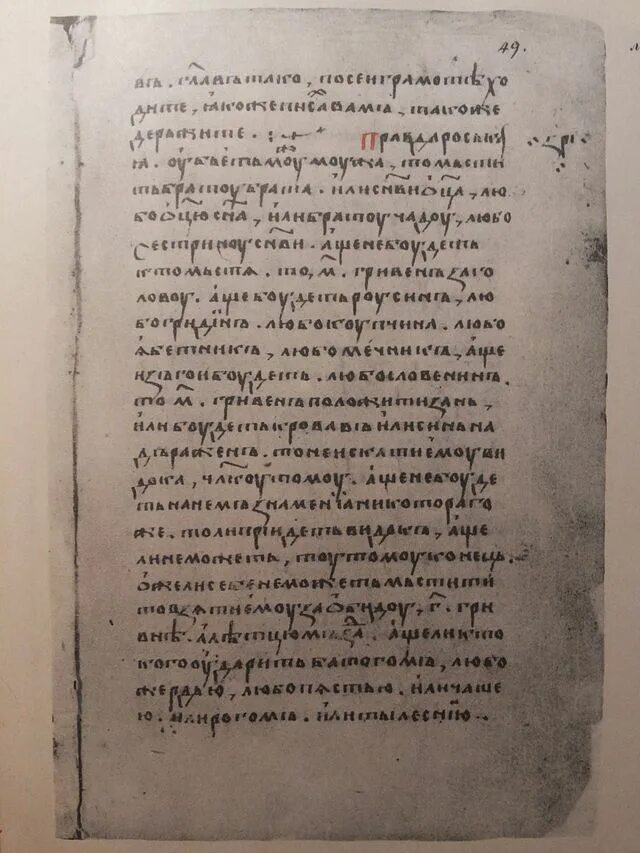 49.
въ. г҃лавъ тако, по сеи грамотѣ хо
дите, ꙗкоже писа вамъ, такоже
держите.
Правда роськ
а. оубьеть моу моужа, то мьсти
ть братоу брата. или с҃нви ѿц҃а, лю
бо ѿц҃ю с҃на, или братоу чадоу, любо
сестриноу с҃нви. аще не боудеть
кто мьстя. то, м҃. гривенъ за го
ловоу. аще боудеть роусинъ, лю
бо гридинъ. любо коупчина. любо
ябетникъ, любо мечникъ, аще
изъгои боудеть. любо словенинъ.
то м҃. гривенъ положити за нь,
или боудеть кровавъ или синь на
дъраженъ. то не искати емоу ви
дока, ч҃лкоу томоу. аще не боуде
ть на немъ знамениа никотораго
же. толи приидеть видокъ, аще
ли не можеть, тоу томоу конець.
ѡже ли себе не можеть мьстити
то взяти емоу за ѡбидоу, г҃. гри
внѣ. а лѣтцю мъзда. аще ли кто
кого оударить батогомъ, любо
жердью, любо пястью. или чаше
ю. или рогомъ. или тылеснию.